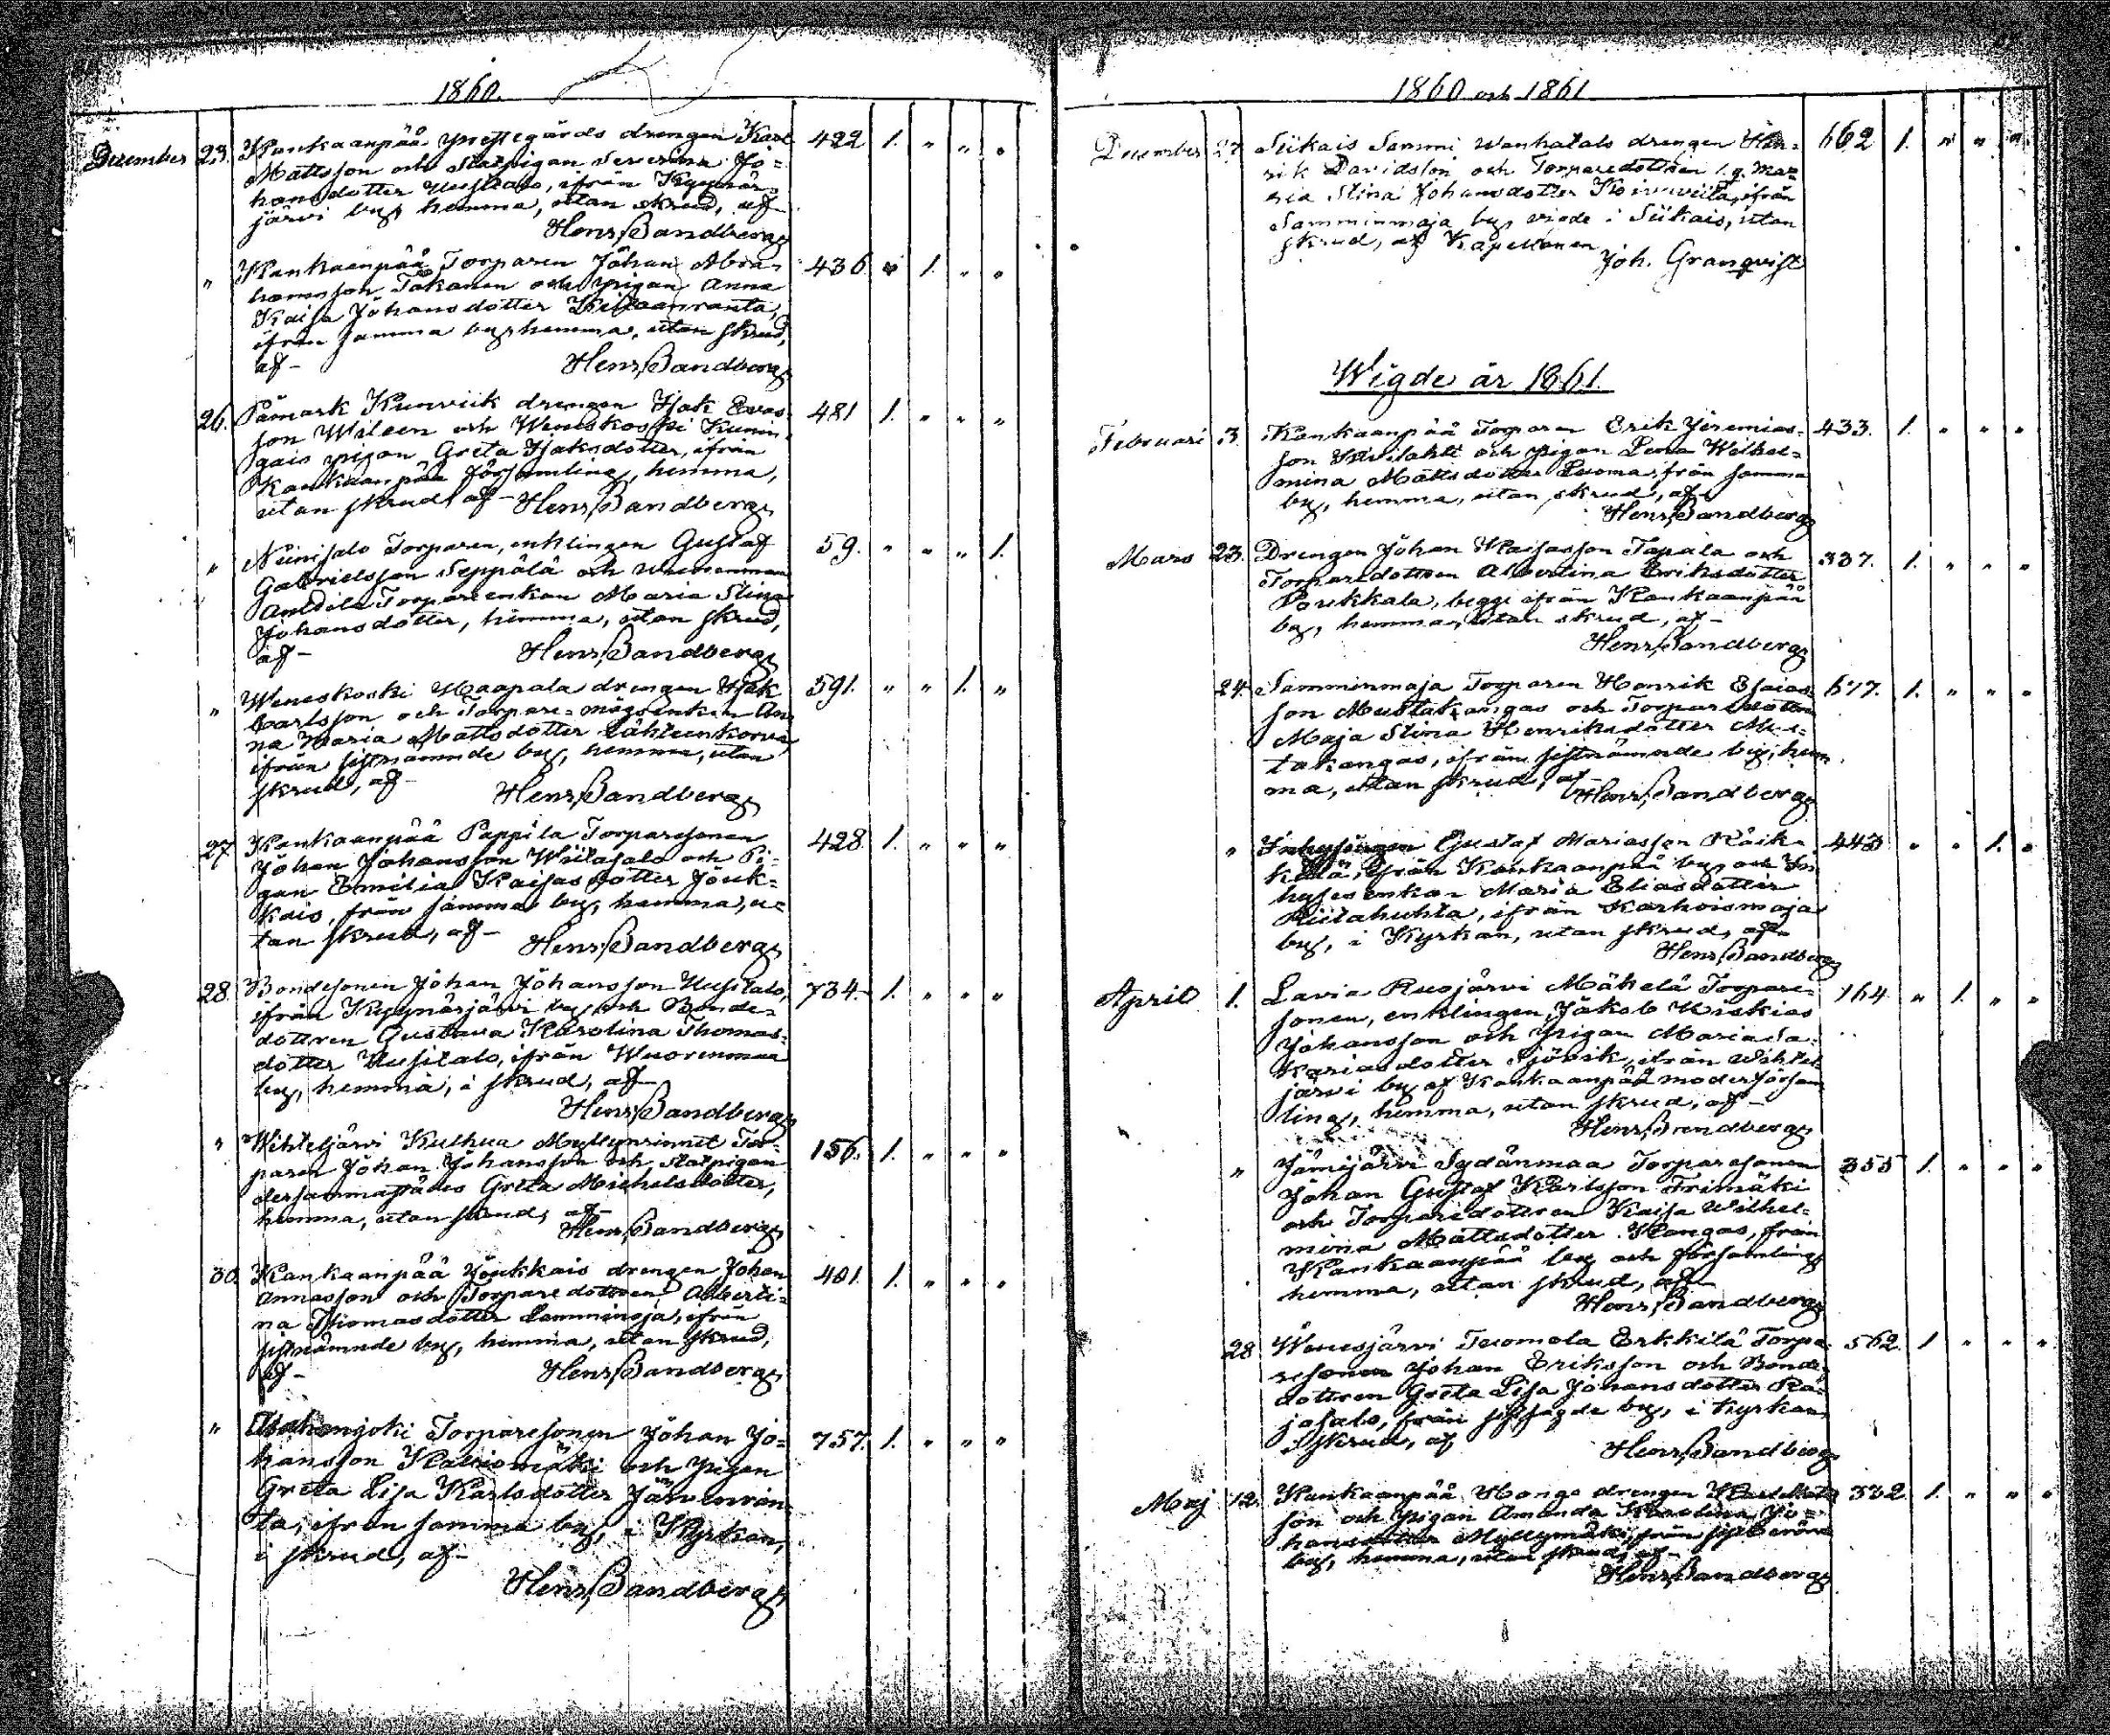 1860.
December 23. Kankaanpää prestegårds drengen Karl 422 1. " " "
Mattsson och Statpigan Severina Jo=
hansdotter Uusitalo, ifrån Kyynär=
järvi by, hemma, utan skrud, af
Henr. Sandberg
" Kankaanpää Torparen Johan Abra= 436 " 1. " "
hamsson och pigan Anna
Kaisa Johansdotter
ifrån samma by, hemma, utan skrud,
af -
Henr. Sandberg
26. Påmark drengen Isak 481 1. " " "
son och Weneskoski
pigan Greta Isaksdotter, ifrån
Kankaanpää församling, hemma,
utan skrud, af - Henr. Sandberg
" Niinisalo Torparen, enklingen Gustaf 59. " " " 1.
Gabrielsson Seppälä och
Anttila Torpareenkan Maria Stina
Johansdotter, hemma, utan skrud,
af -
Henr. Sandberg
" Weneskoski drengen Isak 591. " " 1. "
Carlsson och Torpare= An=
na Maria Mattsdotter Lähteenkorva
ifrån sistnämnde by, hemma, utan
skrud, af -
Henr. Sandberg
27 Kankaanpää Pappila Torparesonen 428. 1. " " "
Johan Johansson Wiitasalo och Pi=
gan Emilia Kaisasdotter Jouk=
kais, från samma by, hemma, u=
tan skrud, af -
Henr. Sandberg
28. Bondesonen Johan Johansson Uusitalo, 734. 1. " " "
ifrån Kyynärjärvi by och Bonde=
dottren Gustava Karolina Thomas=
dotter Uusitalo, ifrån Wuorenmaa
by, hemma, i skrud, af -
Henr. Sandberg
" Wihteljärvi Kulhua Myllynrinnet Tor= 156. 1. " " "
paren Johan Johansson och Statpigan
dersammastädes Greta Michelsdotter,
hemma, utan skrud, af -
Henr. Sandberg
30. Kankaanpää Joukkais drengen Johan 401. 1. " " "
Annasson och Torparedottren Alberti=
na Thomasdotter ifrån
sistnämnde by, hemma, utan skrud,
af -
Henr. Sandberg
" Torparesonen Johan Jo= 757. 1. " " "
hansson och pigan
Greta Lisa Karlsdotter Järvenran=
ta, ifrån samma by, i Kyrkan,
i skrud, af -
Henr. Sandberg
1860 och 1861
December 27. Siikais Sammi Wanhatalo drengen Hen= 662 1. " " "
rik Davidsson och Torparedottren Ma=
ria Stina Johansdotter ifrån
Samminmaja by, vigde i Siikais, utan
skrud, af Kapellanen
Joh. Granqvist
Wigde år 1861.
Februari 3. Kankaanpää Torparen Erik Jeremias= 433. 1. " " "
son och pigan Lena Wilhel=
mina Mattsdotter Luoma, från samma
by, hemma, utan skrud, af
Henr. Sandberg
Mars 23. Drengen Johan Kaisasson Tapala och 337. 1. " " "
Torparedottren Albertina Eriksdotter
Poukkala, begge ifrån Kankaanpää
by, hemma, utan skrud, af -
Henr. Sandberg
24. Samminmaja Torparen Henrik Esaias= 677. 1. " " "
son Mustakangas och Torparedottren
Maja Stina Henriksdotter Mus=
takangas, ifrån sistnämnde by, hem=
ma, utan skrud, af -
Henr. Sandberg
" Inhysingen Gustaf Mariasson 443 " " 1. "
ifrån Kankaanpää by och In=
hysesenkan Maria Eliasdotter
Riitahuhta, ifrån Karhoismaja
by, i Kyrkan, utan skrud, af -
Henr. Sandberg
April 1. Lavia Ruojärvi Mäkelä Torpare= 164 " 1. " "
sonen, enklingen Jakob
Johansson och pigan Maria Sa=
kariasdotter Sjövik, från Wihtel=
järvi by af Kankaanpää moderförsam=
ling, hemma, utan skrud, af -
Henr. Sandberg
" Jämijärvi Sydänmaa Torparesonen 355 1. " " "
Johan Gustaf Karlsson
och Torparedottren Kaisa Wilhel=
mina Mattsdotter Kangas, från
Kankaanpää by och församling,
hemma, utan skrud, af -
Henr. Sandberg
28 Wenesjärvi Tuomola Erkkilä Torpa= 562. 1. " " "
resonen Johan Eriksson och Bonde=
dottren Greta Lisa Johansdotter Ra=
jasalo, från sistsagde by, i kyrkan,
i skrud, af
Henr. Sandberg
Maj 12. Kankaanpää drengen 332 1. " " "
son och pigan Amanda Karolina Jo=
hansdotter Myllymäki, från
by, hemma, utan skrud, af -
Henr. Sandberg